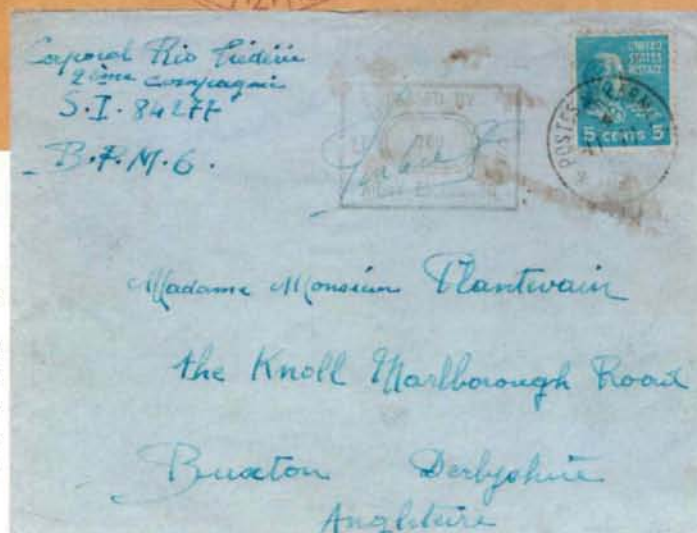 Caporal Rio Frédéric
2ème compagnie
S.I. 84277
B.P.M. 6.
UNITED
STATES
POSTAGE
5 CENTS 5
POSTES
BY
Madame Monsieur Plantevain
the Knoll Marlborough Road
Buxton Derbyshire
Angleterre